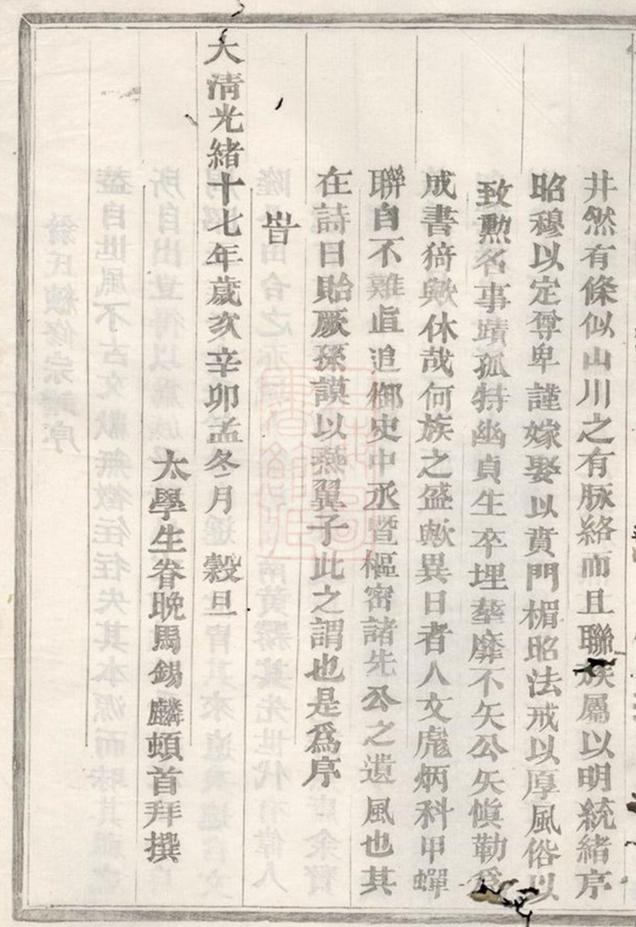 井然有條似山川之有脉絡而且聯族屬以明統緒序
昭穆以定尊卑謹嫁娶以賁門楣昭法戒以厚風俗以
致勲名事蹟孤特幽貞生卒埋塟靡不矢公矢愼勒爲
成書猗歟休哉何族之盛歟異日者人文彪炳科甲蟬
聯自不難直追御史中丞暨樞密諸先公之遺風也其
在詩曰貽厥孫謨以燕翼子此之謂也是爲序
旹
大清光緒十七年歲亥辛卯孟冬月 穀旦
太學生眷晚馬錫麟頓首拜撰